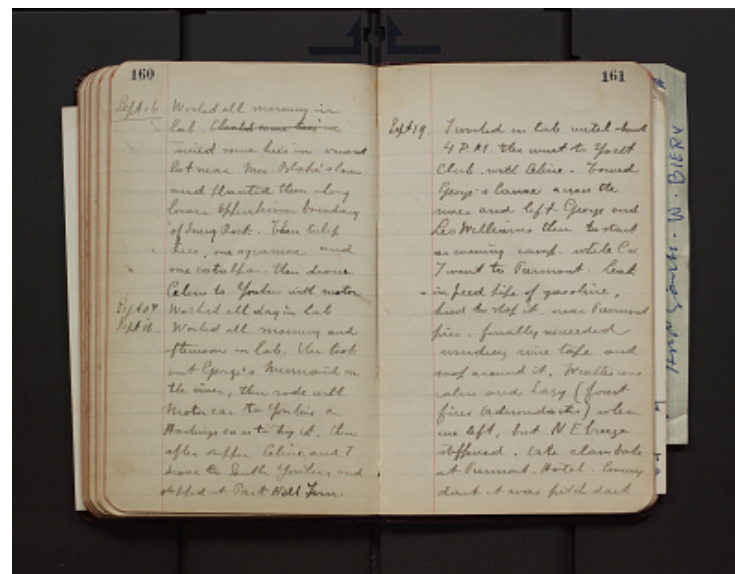 160
Sept 16 Worked all morning in
lab.
mixed some trees in vacant
lot near Mrs. Blake's barn
and planted them along
lower Oppenheim boundary
of Snug Rock. Three tulip
trees, one sycamore and
one catalpa. then drove
Celine to Yonkers with motor
Sept 17 Worked all day in lab
Sept 18. Worked all morning and
afternoon in lab. then took
out George's Mermaid on
the river, then rode with
motor car to Yonkers &
Hastings so as to try it, then
after supper Celine and I
drove to South Yonkers and
stopped at Park Hill Inn.
161
Sept 19. I worked in lab until about
4 P.M. then went to Yacht
Club with Celine - towed
George's canoe across the
river and left George and
Leo Williams there to start
an evening camp. while C &
I went to Piermont. Leak
in feed pipe of gasoline,
tried to stop it near Piermont
pier. finally succeeded
winding wire tape and
soap around it. Weather was
calm and hazy (forest
fires Adirondacks) when
we left, but N E breeze
stiffened. Late clambake
at Piermont Hotel. Coming
it was pitch dark
W. BIERY